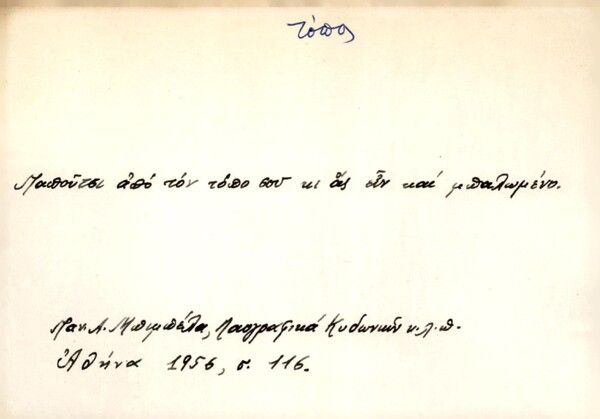 τόπος
Παπούτσι ἀπό τόν τόπο σου κι ἄς εἶν καί μπαλωμένο.
Παν. Λ. Μπιμπέλα, Λαογραφικά Κυδωνιῶν κ.λ.π.
Ἀθήνα 1956, σ. 116.